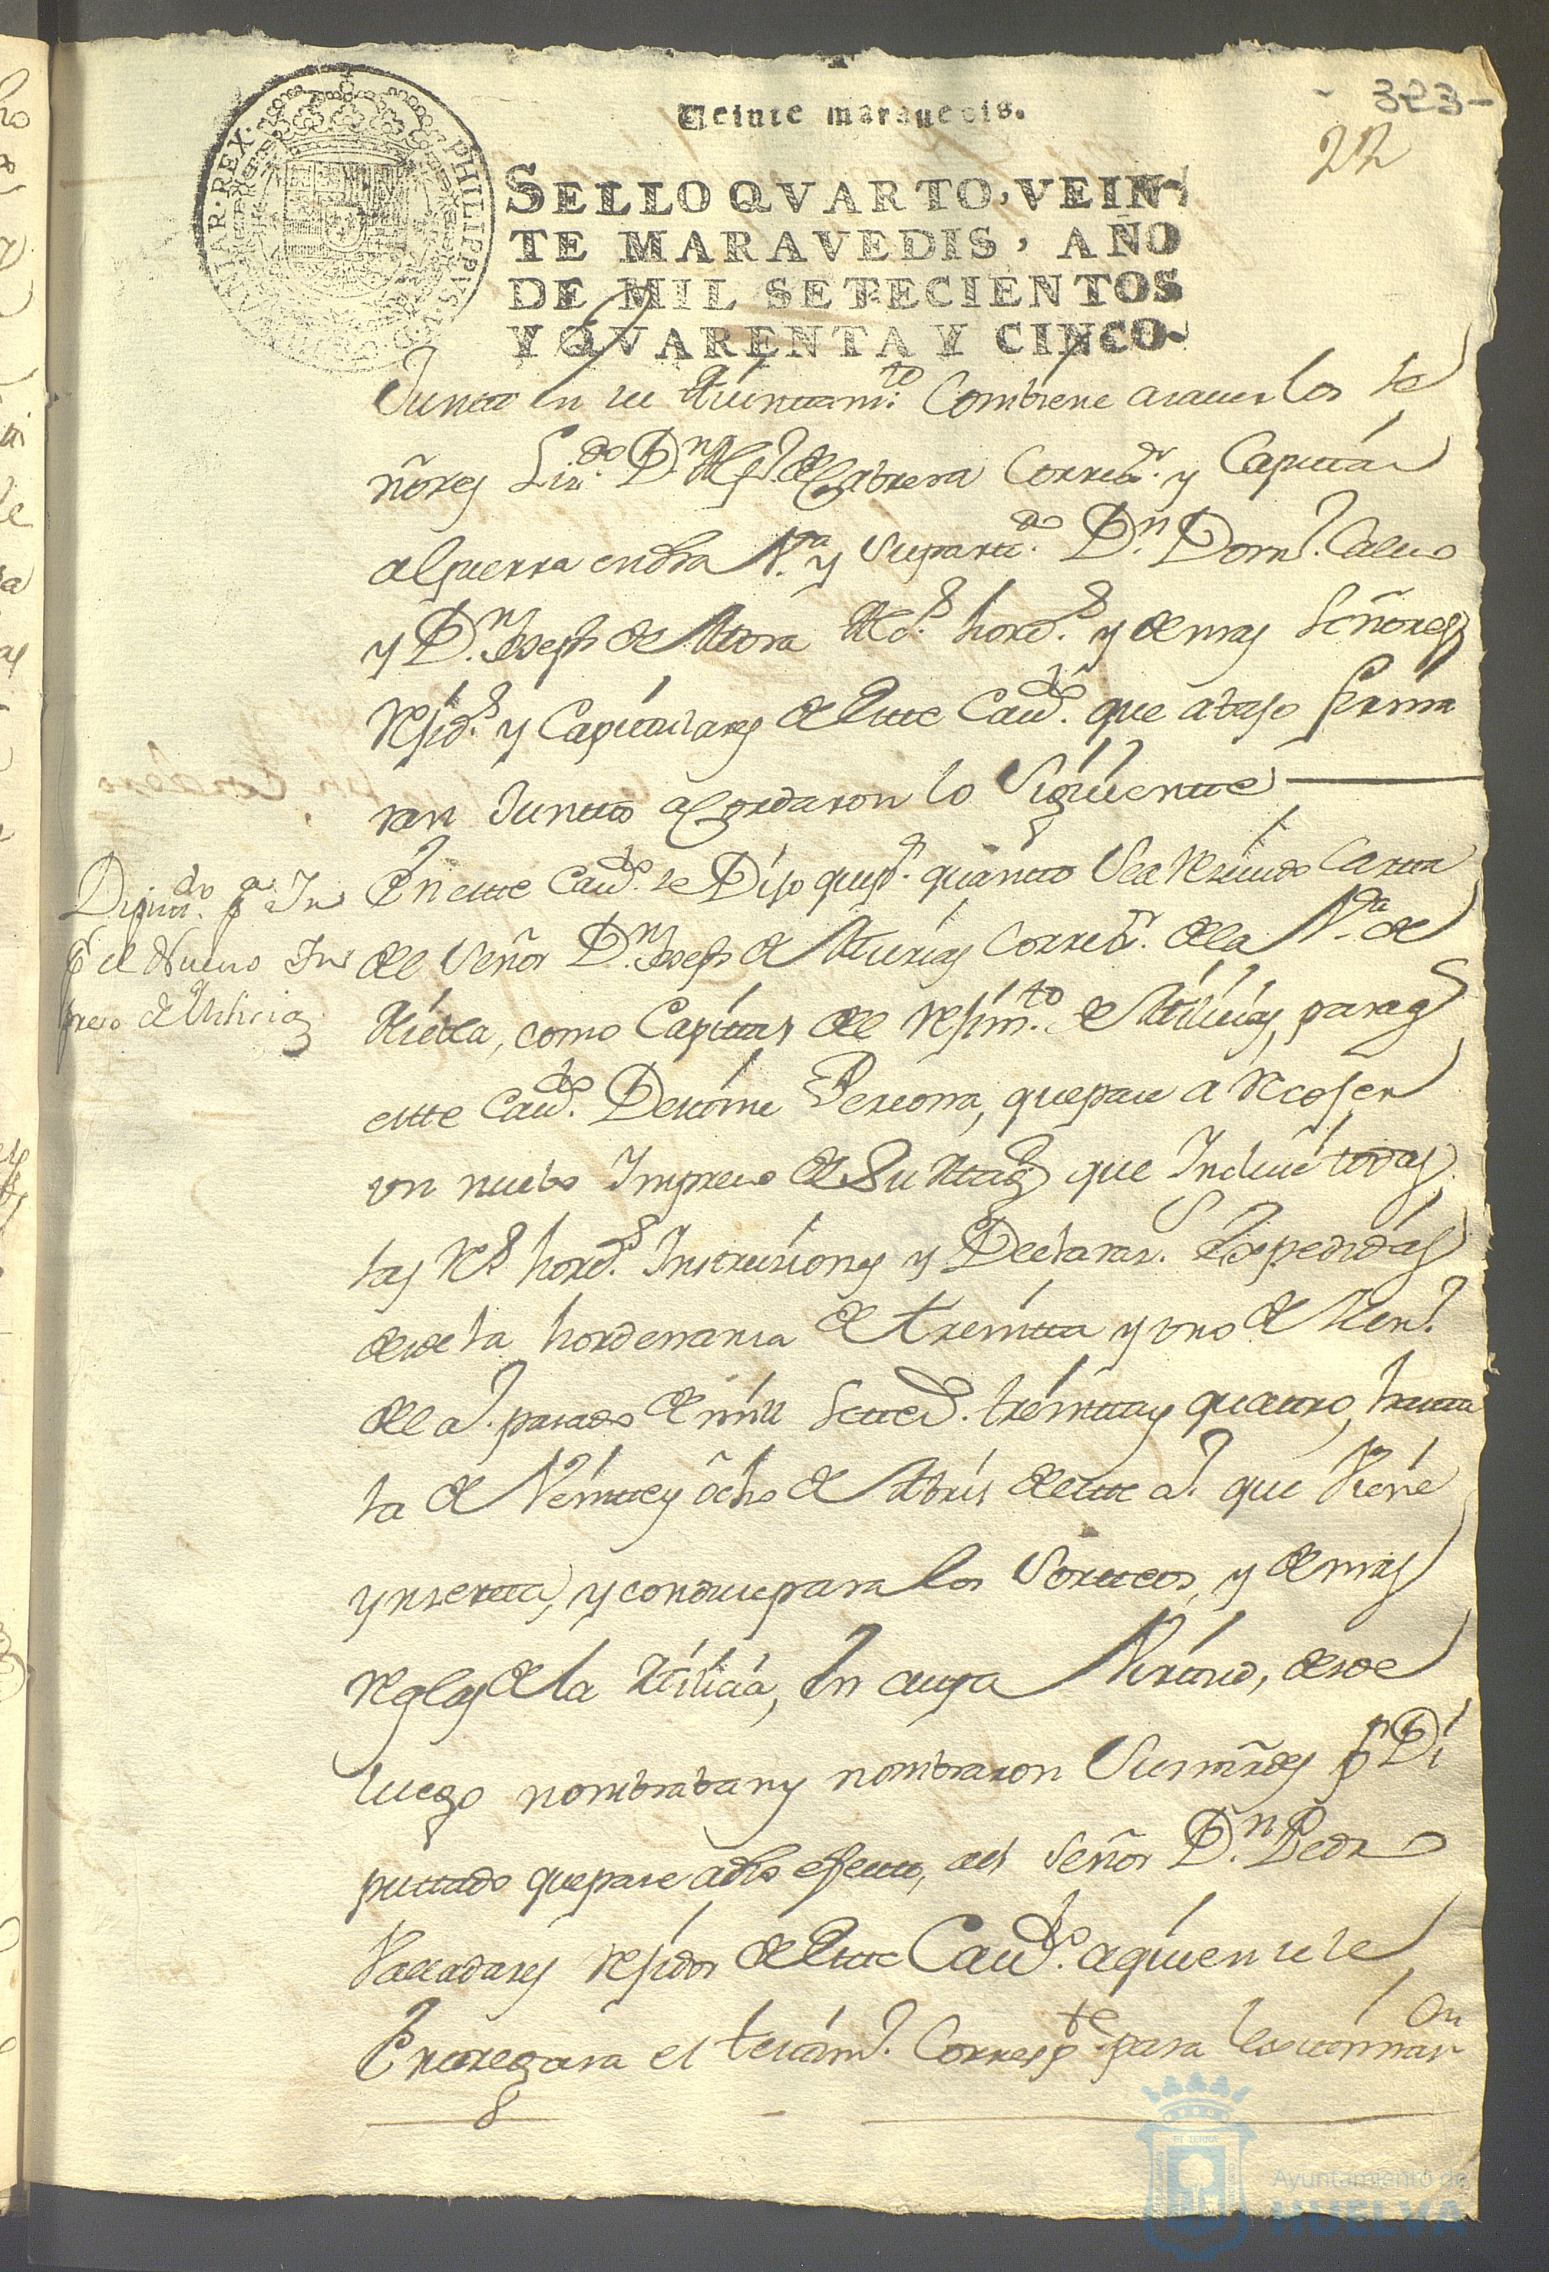 Veinte maravedis.
- 323 -
22
PHILIPPUS V D G HISPANIAR REX
SELLO QVARTO, VEIN
TE MARAVEDIS, AÑO
DE MIL SETECIENTOS
Y QVARENTA Y CINCO
Juntta en su Aiuntam.to Combiene a saver los se
ñores Liz.do D.n Alf.o de Cabrera Correx.dr y Capitta
a Guerra en dha V.a y su partt.do D.n Dom.o Calvo
y D.n Joseph de Mora Alc.s hord.s y demas Señores
Rejid.s y Capitulares de Estte Cav.do que abajo firma
ran Juntto acordaron lo Siguientte
Diputt.do p.a
p.r el Nuevo Im
preso de Milicias
En estte Cav.do se Dijo que p.r quantto Se a Resivido Cartta
del Señor D.n Joseph de Asurias Correx.dr de la V.a de
Niebla, como Capittan del Rejim.to de Milicias, para q
estte Cav.do Destine Persona, que pase a Recojer
un nuebo Impreso de Su Mag.d que Inclue todas
las R.s hord.s Instrusiones y Declaras. Expedidas
desde la hordenansa de treintta y uno de Hen.o
del a.o pasado de mill Setted. treintta y quattro, hastta
la de Veintte y ocho de Abril de estte a.o que Viene
ynsertta, y conduse para los Sortteos, y demas
Reglas de la Milicia, En cuya Virtud, desde
luego nombraban y nombraron Sus mrdes p.r Di
puttado que pase a dho efectto, al Señor D.n Pedro
Valladares Rejidor de Estte Cav.do a quien se le
Enttregara el testim.o Corresp.te para